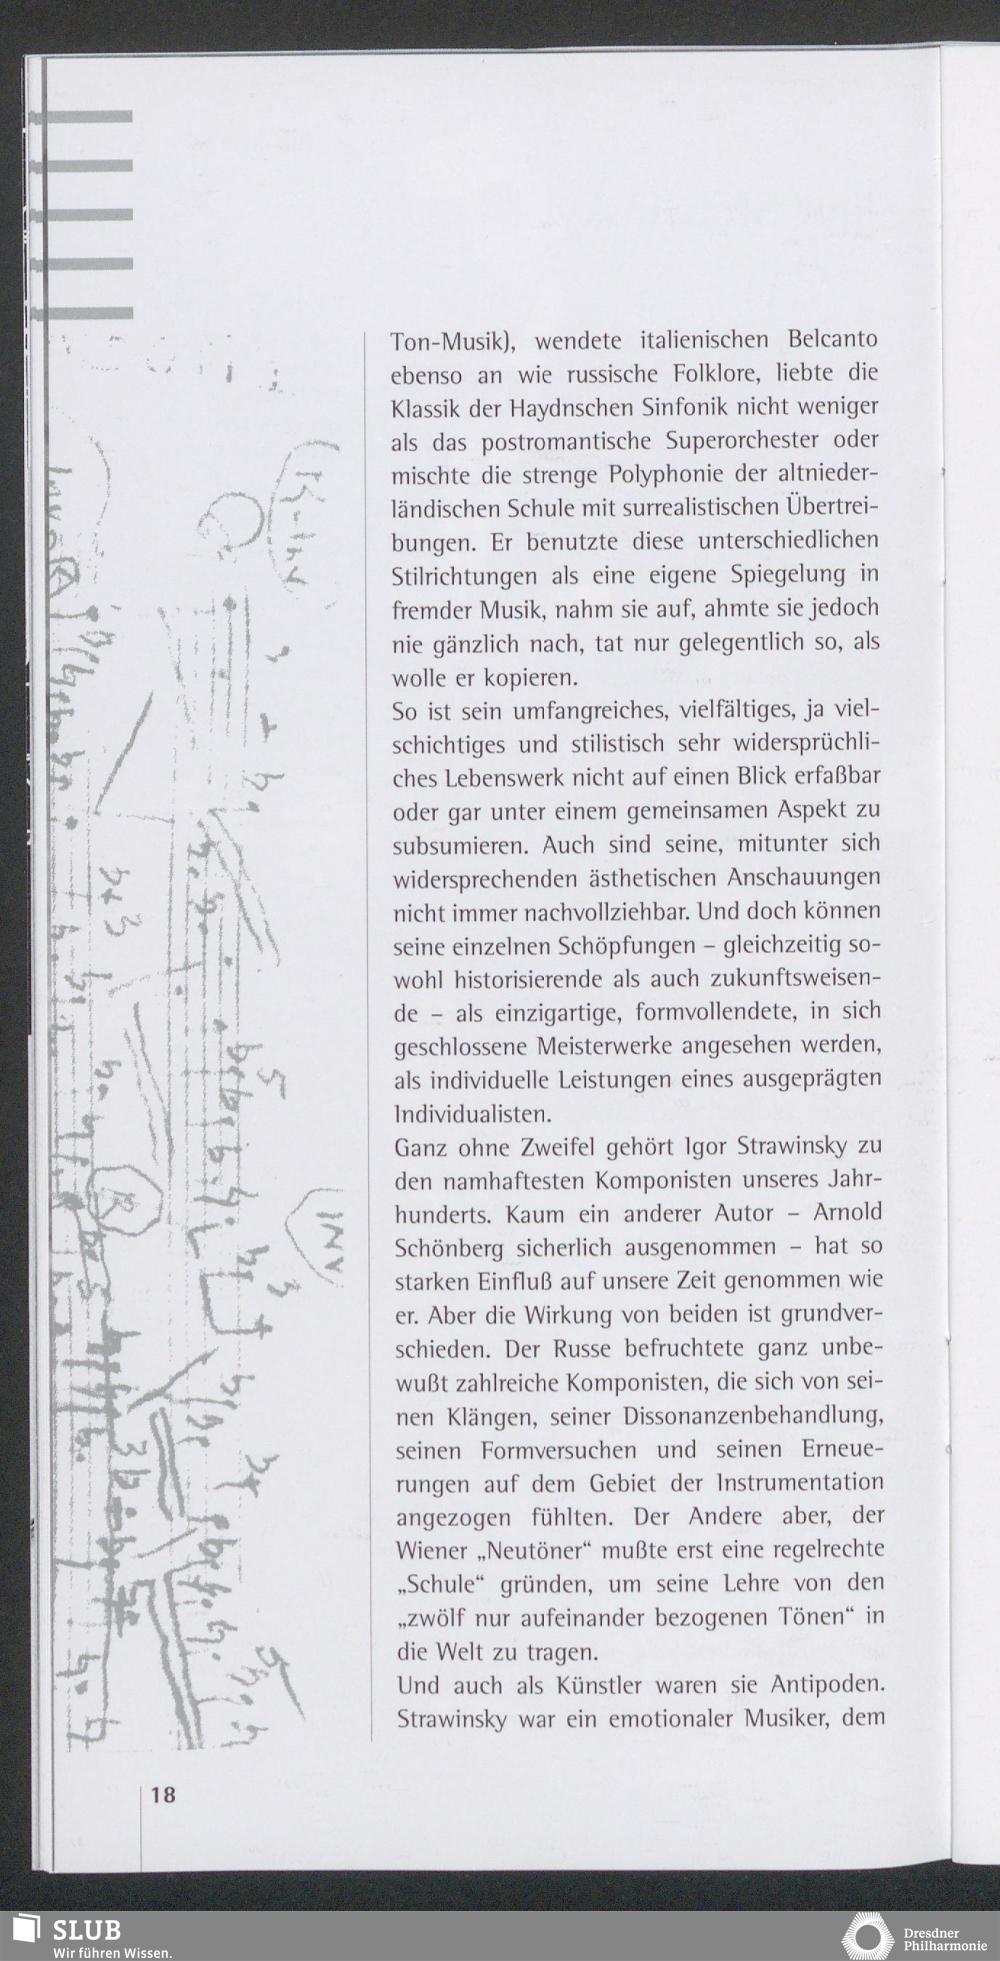 Ton-Musik), wendete italienischen Belcanto
ebenso an wie russische Folklore, liebte die
Klassik der Haydnschen Sinfonik nicht weniger
als das postromantische Superorchester oder
mischte die strenge Polyphonie der altnieder-
ländischen Schule mit surrealistischen Übertrei-
bungen. Er benutzte diese unterschiedlichen
Stilrichtungen als eine eigene Spiegelung in
fremder Musik, nahm sie auf, ahmte sie jedoch
nie gänzlich nach, tat nur gelegentlich so, als
wolle er kopieren.
So ist sein umfangreiches, vielfältiges, ja viel-
schichtiges und stilistisch sehr widersprüchli-
ches Lebenswerk nicht auf einen Blick erfaßbar
oder gar unter einem gemeinsamen Aspekt zu
subsumieren. Auch sind seine, mitunter sich
widersprechenden ästhetischen Anschauungen
nicht immer nachvollziehbar. Und doch können
seine einzelnen Schöpfungen – gleichzeitig so-
wohl historisierende als auch zukunftsweisen-
de – als einzigartige, formvollendete, in sich
geschlossene Meisterwerke angesehen werden,
als individuelle Leistungen eines ausgeprägten
Individualisten.
Ganz ohne Zweifel gehört Igor Strawinsky zu
den namhaftesten Komponisten unseres Jahr-
hunderts. Kaum ein anderer Autor – Arnold
Schönberg sicherlich ausgenommen – hat so
starken Einfluß auf unsere Zeit genommen wie
er. Aber die Wirkung von beiden ist grundver-
schieden. Der Russe befruchtete ganz unbe-
wußt zahlreiche Komponisten, die sich von sei-
nen Klängen, seiner Dissonanzenbehandlung,
seinen Formversuchen und seinen Erneue-
rungen auf dem Gebiet der Instrumentation
angezogen fühlten. Der Andere aber, der
Wiener „Neutöner“ mußte erst eine regelrechte
„Schule“ gründen, um seine Lehre von den
„zwölf nur aufeinander bezogenen Tönen“ in
die Welt zu tragen.
Und auch als Künstler waren sie Antipoden.
Strawinsky war ein emotionaler Musiker, dem
INV
18
SLUB
Wir führen Wissen.
Dresdner
Philharmonie